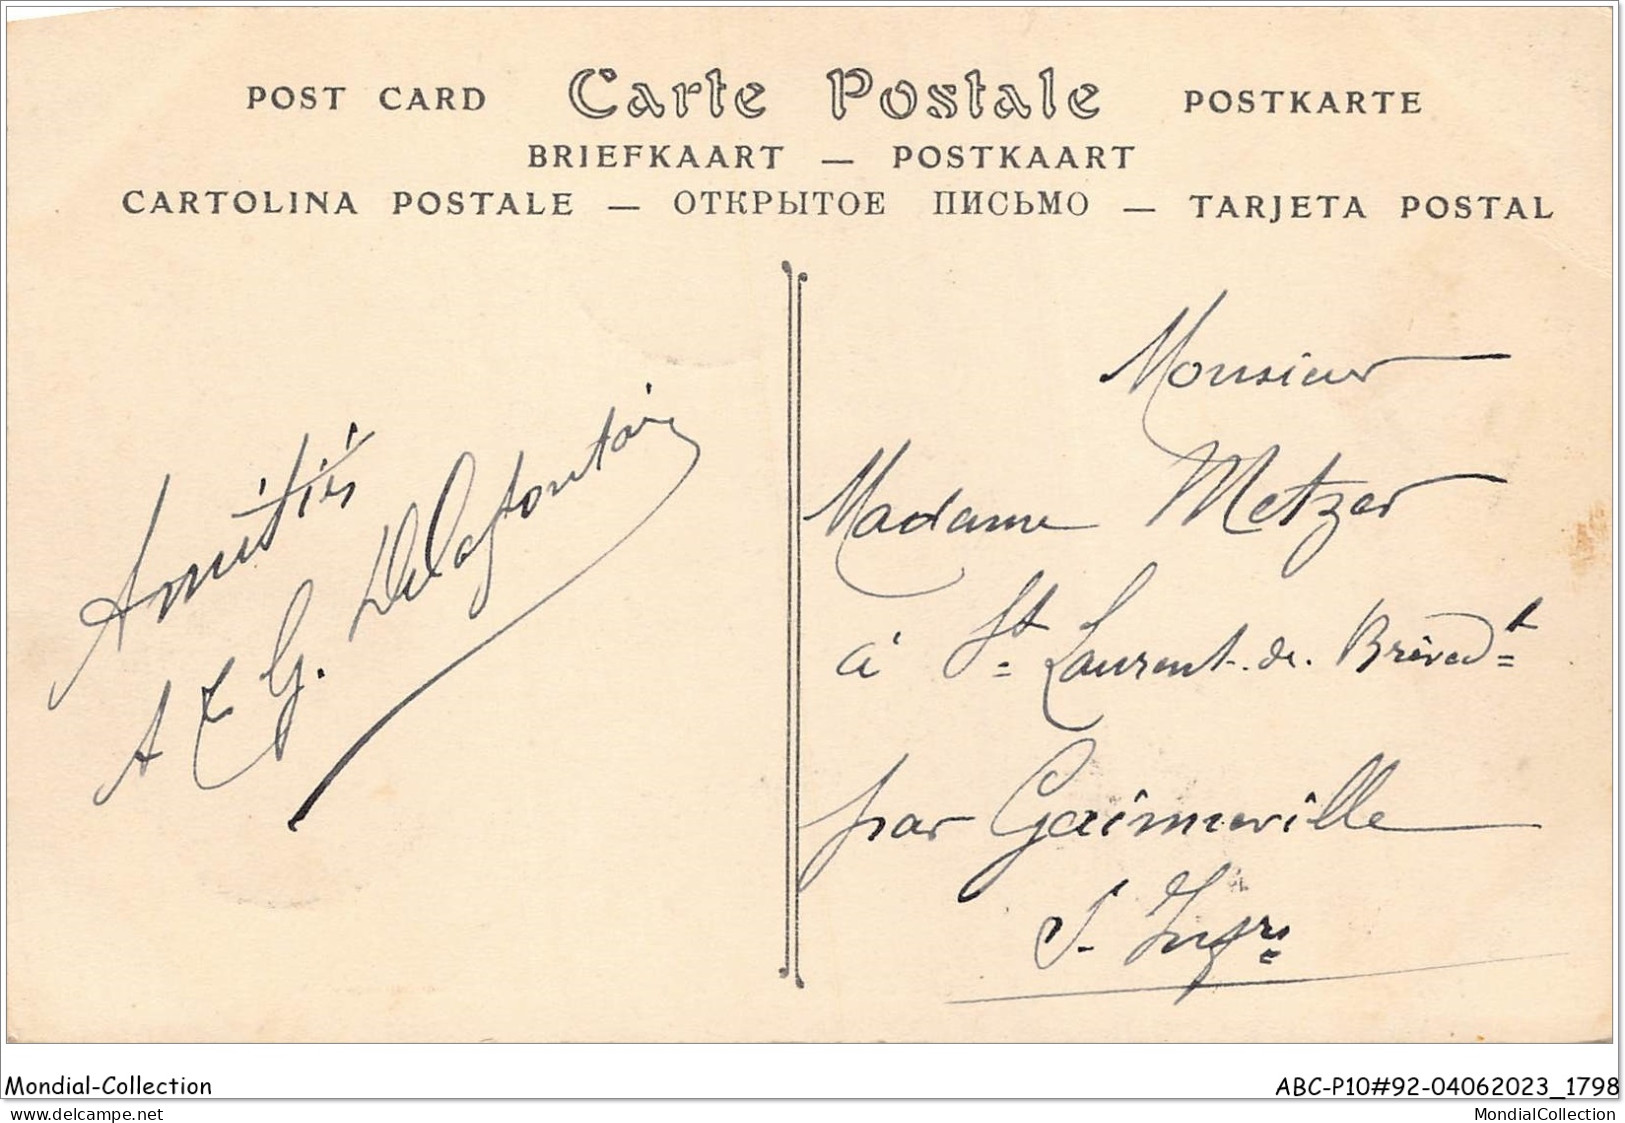 POST CARD Carte Postale POSTKARTE
BRIEFKAART — POSTKAART
CARTOLINA POSTALE — ОТКРЫТОЕ ПИСЬМО — TARJETA POSTAL
Amitiés
A et G. Delafontaine
Monsieur
Madame Metzer
à St Laurent-de-Brèvedt
par Gainneville
S. Infre
Mondial-Collection
ABC-P10#92-04062023_1798
www.delcampe.net
MondialCollection